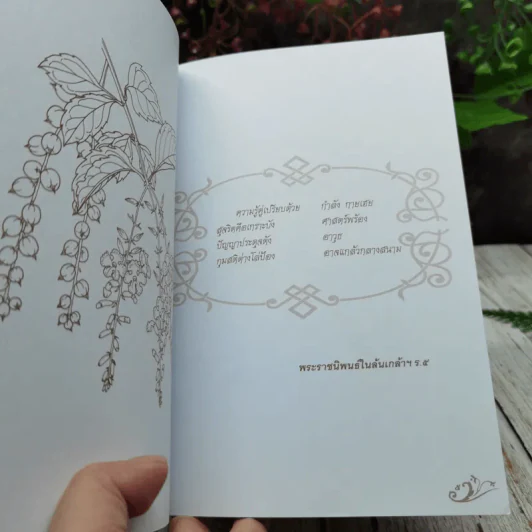 ความรู้คู่เปรียบด้วย กำลัง กายเฮย
สุจริตคือเกราะบัง ศาสตร์พร้อง
ปัญญาประดุจดัง อาวุธ
กุมสติต่างโล่ป้อง อาจแกล้วกลางสนาม
พระราชนิพนธ์ในล้นเกล้าฯ ร.๕